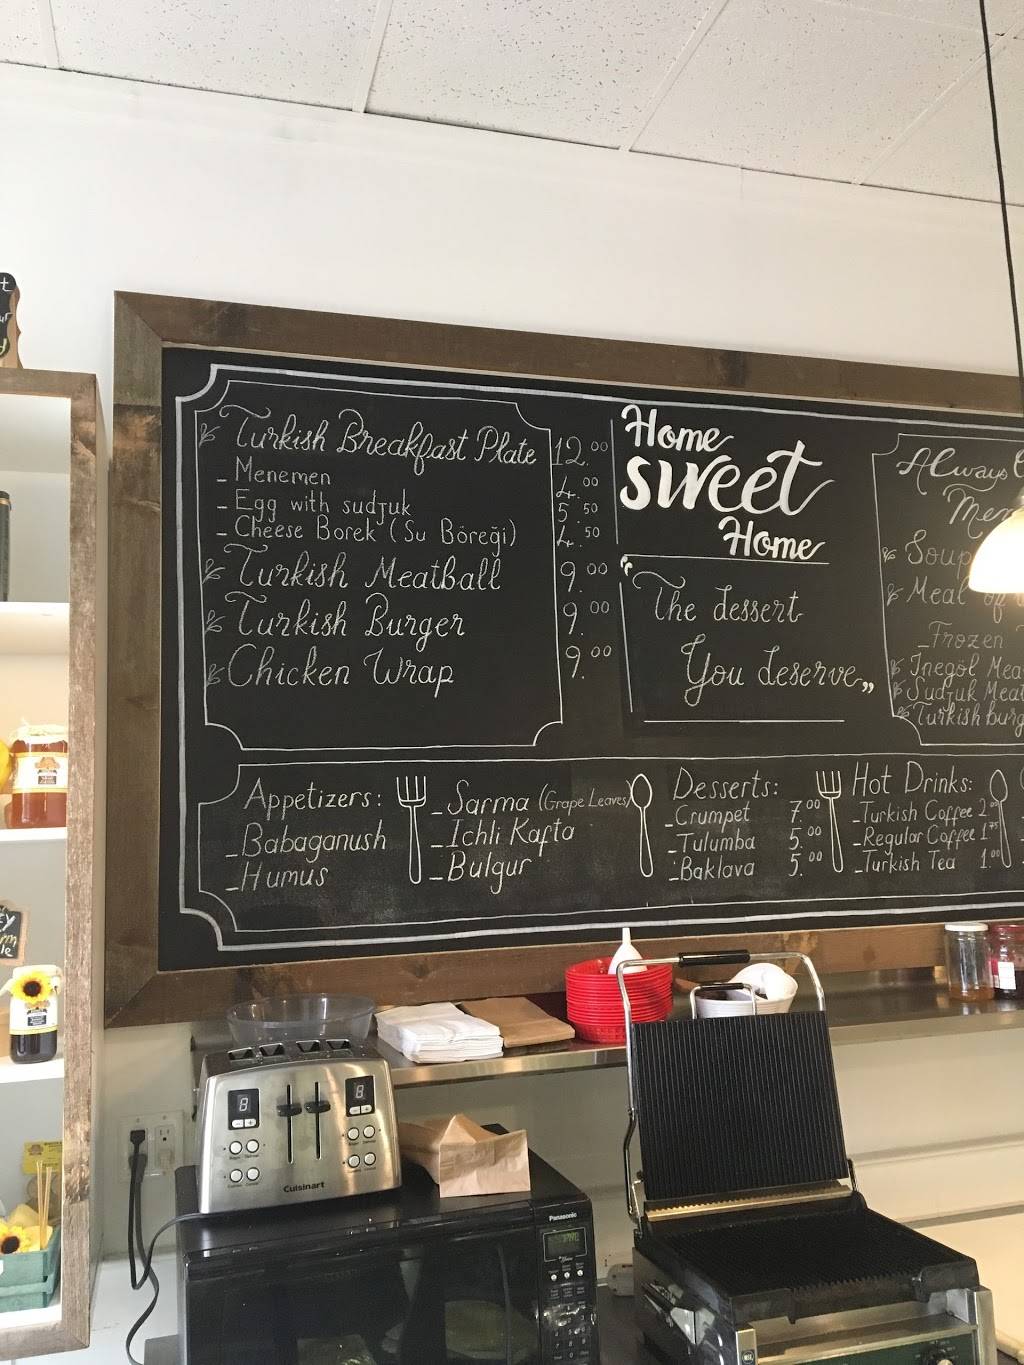 Turkish Breakfast Plate 12.00
- Menemen 4.00
- Egg with sudjuk 5.50
- Cheese Borek (Su Böreği) 4.50
Turkish Meatball 9.00
Turkish Burger 9.00
Chicken Wrap 9.00
Home
sweet
Home
"The dessert
You deserve„
Always
Soup
Meal of
- Frozen
Inegöl
Sudjuk
Turkish burg
Appetizers:
- Babaganush
- Humus
- Sarma (Grape Leaves)
- Ichli Kafta
- Bulgur
Desserts:
- Crumpet 7.00
- Tulumba 5.00
- Baklava 5.00
Hot Drinks:
- Turkish Coffee 2
- Regular Coffee 1.75
- Turkish Tea 1.00
Cuisinart
Panasonic